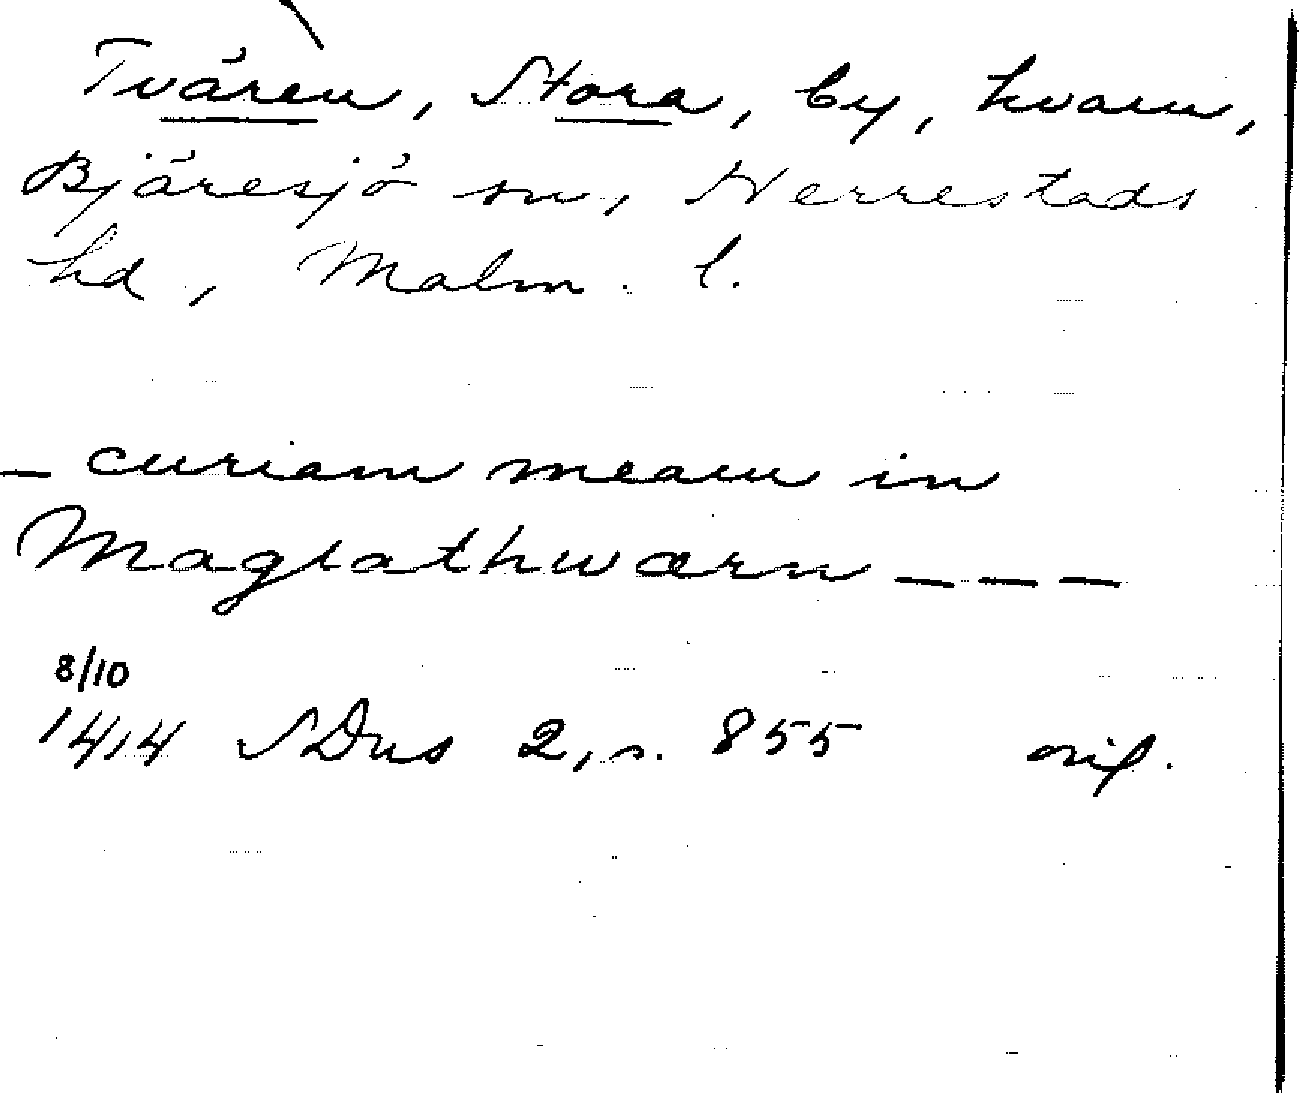 Tvären, Stora, by, kvarn,
Bjäresjö sn, Herrestads
hd, Malm. l.
– curiam meam in
Maglathwærn – – –
8/10
1414 SDns 2, s. 855 orig.